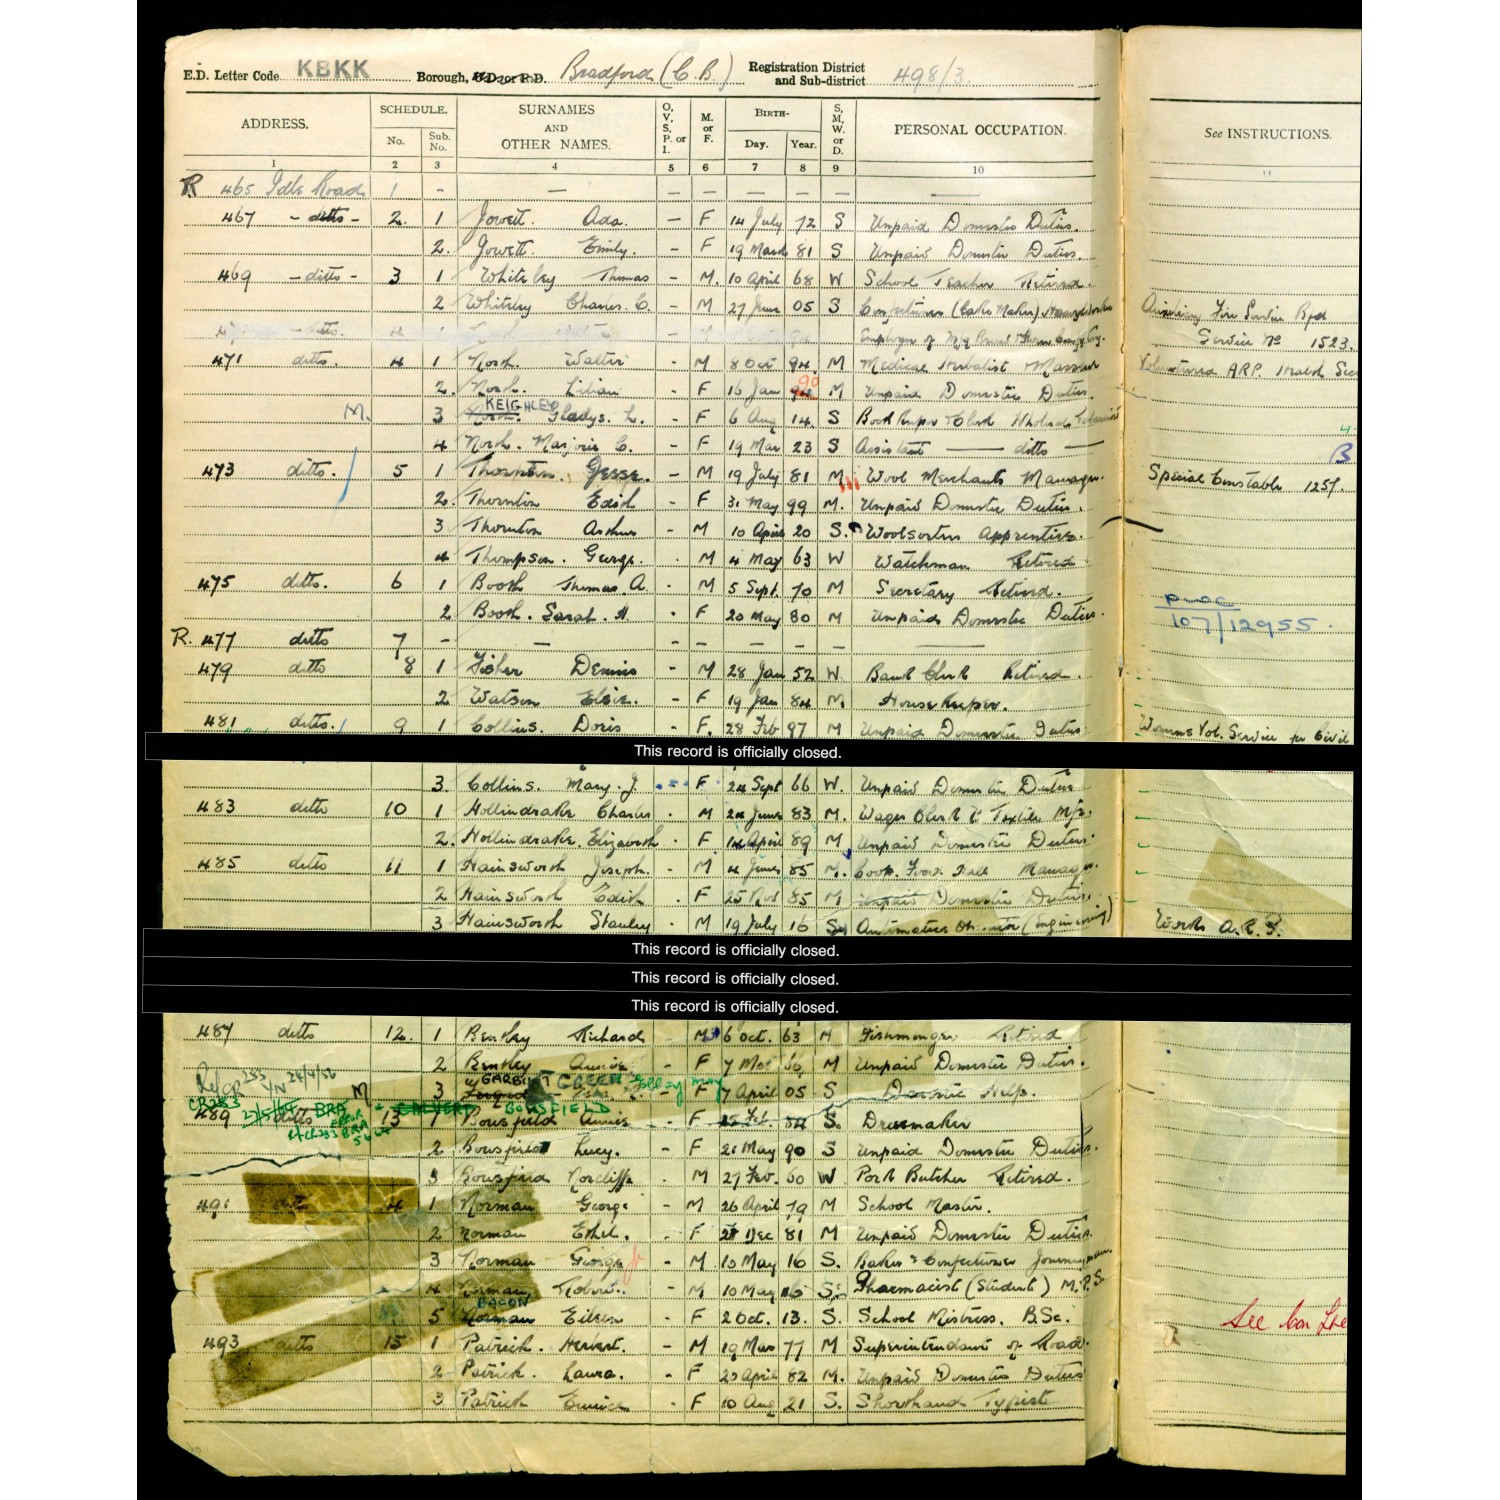 E.D. Letter Code KBKK Borough, U.D. or R.D. Bradford (C.B.) Registration District and Sub-district 498/3.
ADDRESS. SCHEDULE. No. Sub. No. SURNAMES AND OTHER NAMES. O, V, S, P, or I. M. or F. BIRTH- Day. Year. S, M, W, or D. PERSONAL OCCUPATION. See INSTRUCTIONS.
1 2 3 4 5 6 7 8 9 10 11
R 465 Idle Road 1 - — — — — — — —
467 - ditto - 2. 1 Jowett. Ada. — F 14 July 72 S Unpaid Domestic Duties.
2. Jowett. Emily. - F 19 March 81 S Unpaid Domestic Duties.
469 - ditto - 3 1 Whiteley Thomas - M. 10 April 68 W School Teacher Retired.
2 Whiteley Charles. C. - M 27 June 05 S Confectioner (Cake Maker) Auxiliary Fire Service Bfd
Service No 1523.
471 ditto. 4 1 North. Walter - M 8 Oct 94. M Medical Herbalist Masseur Volunteered ARP.
2. North. Lilian - F 16 Jan 90 M Unpaid Domestic Duties.
M. 3 North. KEIGHLEY Gladys. L. - F 6 Aug 14. S Book Keeper Clerk Wholesale
4 North. Marjorie C. - F 19 Mar 23 S Assistant — ditto —
B
473 ditto. 5 1 Thornton. Jesse. - M 19 July 81 M Wool Merchants Manager. Special Constable 1257.
2. Thornton Edith - F 31 May 99 M. Unpaid Domestic Duties.
3 Thornton Arthur - M 10 April 20 S. Woolsorters Apprentice.
4 Thompson. George. . M 4 May 63 W Watchman Retired
475 ditto. 6 1 Booth Thomas. A. - M 5 Sept. 70 M Secretary Retired.
2 Booth. Sarah. H. . F 20 May 80 M Unpaid Domestic Duties.
107/12955.
R. 477 ditto 7 - — - - - - - —
479 ditto 8 1 Fisher Dennis - M 28 Jan 52 W. Bank Clerk Retired.
2 Watson Elsie. - F 19 Jan 84 M. Housekeeper.
481 ditto. 9 1 Collins. Doris - F. 28 Feb 97 M Unpaid Domestic Duties Womens Vol. Service for Civil
This record is officially closed.
3. Collins. Mary. J. F 24 Sept 66 W. Unpaid Domestic Duties
483 ditto 10 1 Hollindrake Charles . M 24 June 83 M. Wages Clerk Textile Mfr.
2. Hollindrake. Elizabeth . F 14 April 89 M Unpaid Domestic Duties.
485 ditto 11 1 Hainsworth Joseph. - M 4 June 85 M. Manager.
2 Hainsworth Edith . F 25 Nov 85 M Unpaid Domestic Duties.
3 Hainsworth Stanley . M 19 July 16 S (Engineering) Works A.R.P.
This record is officially closed.
This record is officially closed.
This record is officially closed.
487 ditto 12. 1 Bentley Richard - M 6 Oct. 63 M Fishmonger Retired
2 Bentley Annie - F 7 Mar 66 M Unpaid Domestic Duties.
M 3 GARBUTT GREEN F 7 April 05 S Domestic Help.
CR283 BRA BOWSFIELD
489 ditto 13 1 Bowsfield Annie - F 25 Feb. 84 S. Dressmaker
2 Bowsfield Lucy. - F 21 May 90 S Unpaid Domestic Duties.
3 Bowsfield Norcliffe . M 27 Feb. 60 W Pork Butcher Retired.
491 ditto 14 1 Norman George - M 26 April 79 M School Master.
2 Norman Ethel. . F 27 Dec 81 M Unpaid Domestic Duties.
3 Norman George - M. 10 May 16 S. Baker & Confectioner Journeyman
4 Norman Robert. - M 10 May 16 S. Pharmacist (Student) M.P.S.
5 Norman BACON Eileen - F 2 Oct. 13. S. School Mistress. B.Sc. See
493 ditto 15 1 Patrick. Herbert. - M 19 Mar 77 M Superintendent of Road.
2 Patrick. Laura. - F 20 April 82 M. Unpaid Domestic Duties
3 Patrick - F 10 Aug 21 S. Shorthand Typiste